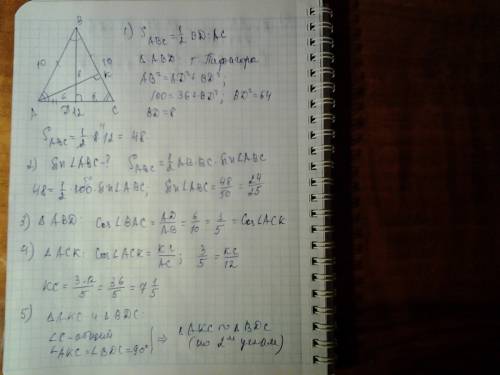 B
10 10
8
K
A 6 D 6 C
12
1) S_ABC = 1/2 BD·AC
Δ ABD т. Пифагора
AB² = AD² + BD²;
100 = 36 + BD²; BD² = 64
BD = 8
S_ABC = 1/2 · 8 · 12 = 48
2) Sin∠ABC - ? S_ABC = 1/2 AB·BC·Sin∠ABC
48 = 1/2 · 100 · Sin∠ABC; Sin∠ABC = 48/50 = 24/25
3) Δ ABD: Cos∠BAC = AD/AB = 6/10 = 3/5 = Cos∠ACK
4) Δ ACK: Cos∠ACK = KC/AC; 3/5 = KC/12
KC = 3·12/5 = 36/5 = 7 1/5
5) Δ AKC и Δ BDC:
∠C - общий
∠AKC = ∠BDC = 90° ⇒ Δ AKC ∾ Δ BDC
(по 2ᵐ углам)